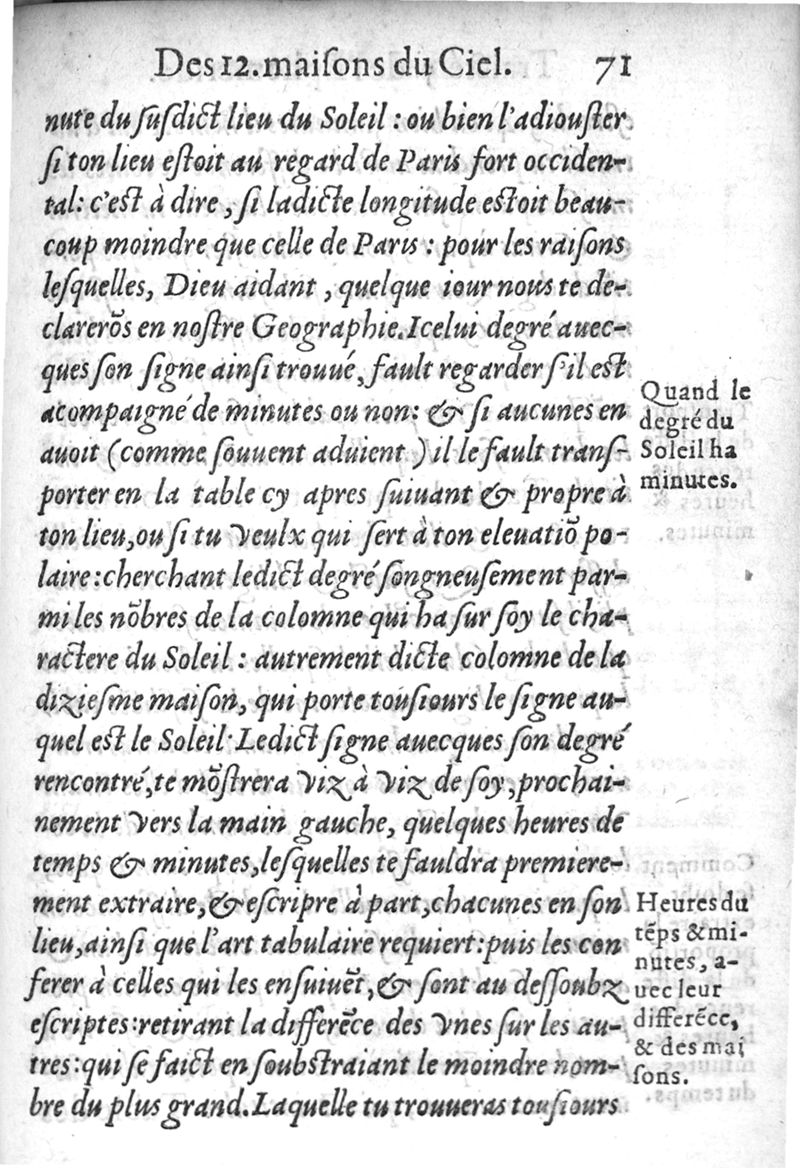 Des 12. maiſons du Ciel. 71
nute du ſuſdict lieu du Soleil : ou bien l'adiouſter
ſi ton lieu eſtoit au regard de Paris fort occiden-
tal: c'eſt à dire, ſi ladicte longitude eſtoit beau-
coup moindre que celle de Paris : pour les raiſons
leſquelles, Dieu aidant, quelque iour nous te de-
clarerõs en noſtre Geographie. Icelui degré auec-
ques ſon ſigne ainſi trouué, fault regarder ſ'il eſt
acompaigné de minutes ou non: & ſi aucunes en
auoit (comme ſouuent aduient) il le fault tranſ-
porter en la table cy apres ſuiuant & propre à
ton lieu, ou ſi tu veulx qui ſert à ton eleuatiõ po-
laire: cherchant ledict degré ſongneuſement par-
mi les nõbres de la colomne qui ha ſur ſoy le cha-
ractere du Soleil : autrement dicte colomne de la
dizieſme maiſon, qui porte touſiours le ſigne au-
quel eſt le Soleil. Ledict ſigne auecques ſon degré
rencontré, te mõſtrera viz à viz de ſoy, prochai-
nement vers la main gauche, quelques heures de
temps & minutes, leſquelles te fauldra premiere-
ment extraire, & eſcripre à part, chacunes en ſon
lieu, ainſi que l'art tabulaire requiert: puis les con
ferer à celles qui les enſuiuẽt, & ſont au deſſoubz
eſcriptes: retirant la differẽce des vnes ſur les au-
tres: qui ſe faict en ſoubſtraiant le moindre nom-
bre du plus grand. Laquelle tu trouueras touſiours
Quand le
degré du
Soleil ha
minutes.
Heures du
tẽps & mi-
nutes, a-
uec leur
differẽce,
& des mai
ſons.